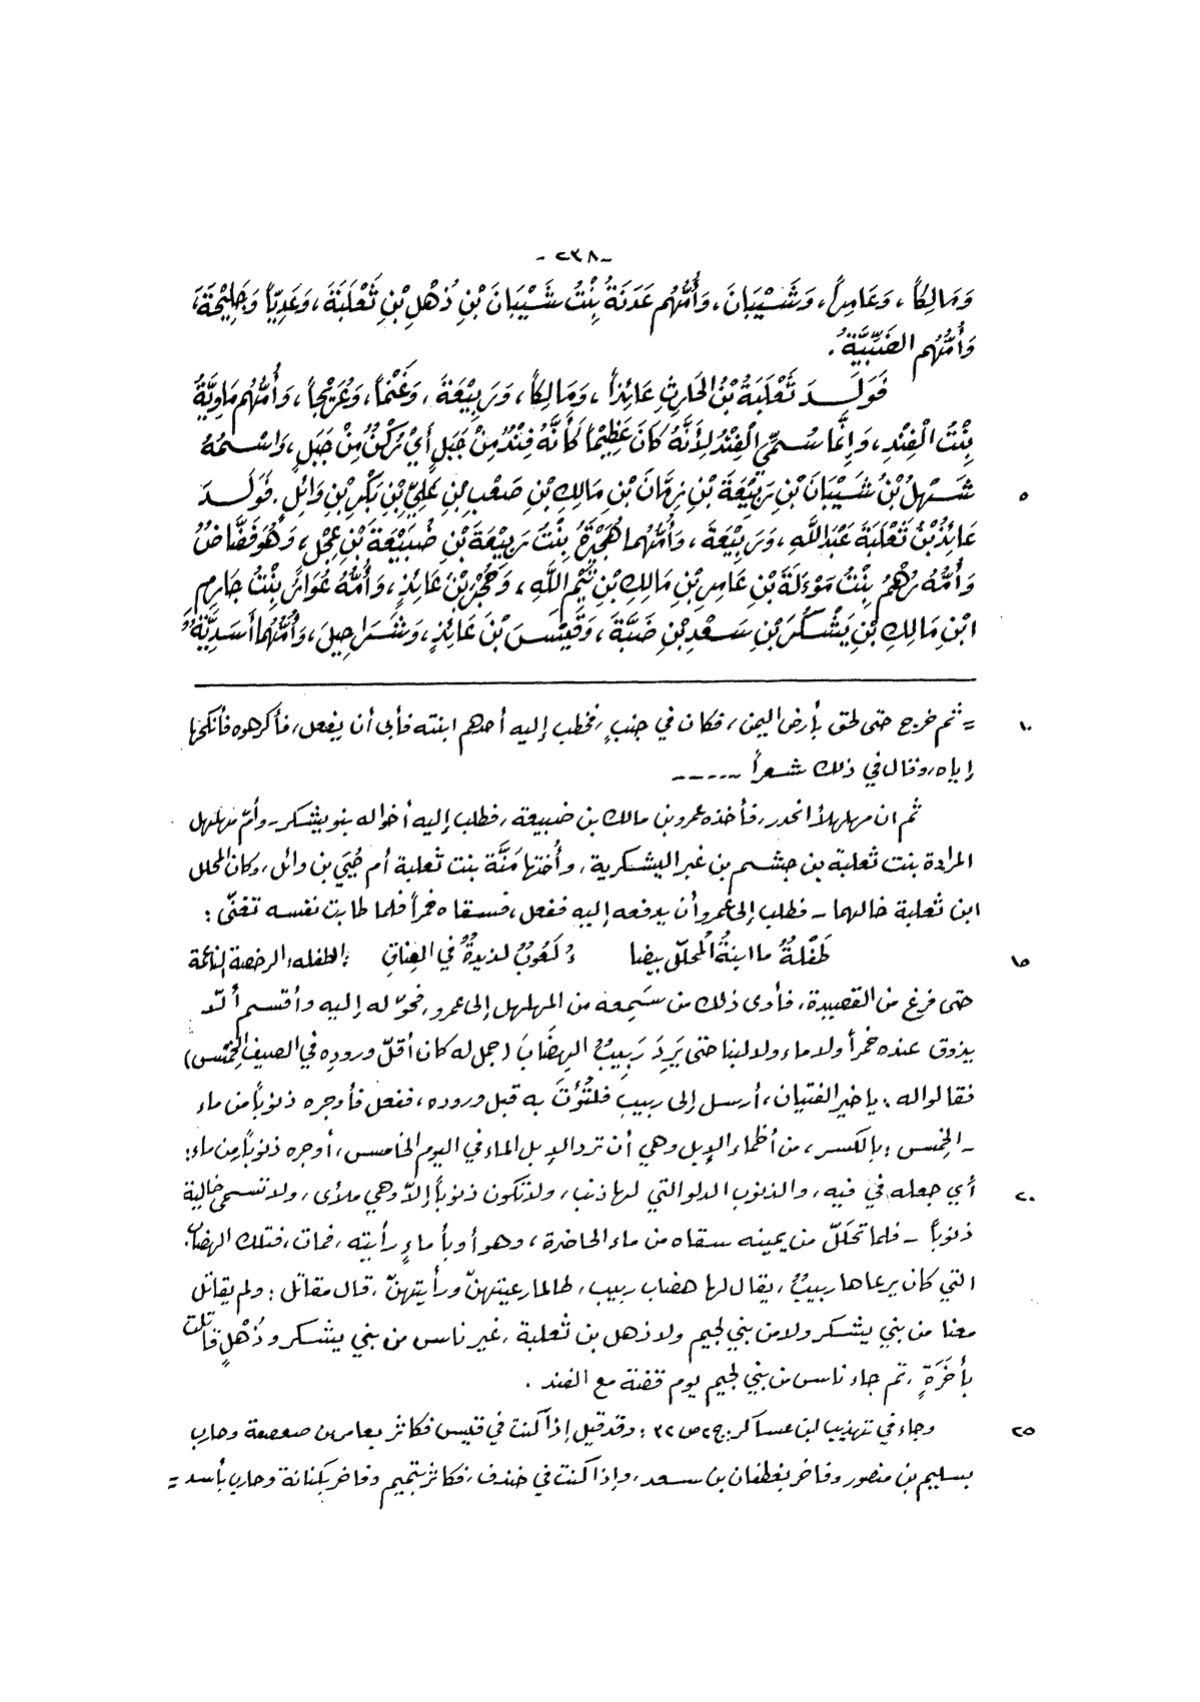 - ٢٣٨ -
وَمَالِكاً، وَعَامِراً، وَشَيْبَانَ، وَأُمُّهُم عَدَنَةُ بِنْتُ شَيْبَانَ بْنِ ذُهْلِ بْنِ ثَعْلَبَةَ، وَعَدِيّاً وَجَلِيْحَةَ،
وَأُمُّهُم الضَبِّيَّةُ.
فَوَلَدَ ثَعْلَبَةُ بْنُ الحَارِثِ عَائِذاً، وَمَالِكاً، وَرَبِيْعَةَ، وَغَنْماً، وَعُرَيْجاً، وَأُمُّهُم مَاوِيَّةُ
بِنْتُ الْفِنْدِ، وَإِنَّمَا سُمِّيَ الْفِنْدُ لِأَنَّهُ كَانَ عَظِيْمَاً كَأَنَّهُ فِنْدٌ مِنْ جَبَلٍ أَيْ رُكْنٌ مِنْ جَبَلٍ، وَاسْمُهُ
شَهْلُ بْنُ شَيْبَانَ بْنِ رَبِيْعَةَ بْنِ زِمَّانَ بْنِ مَالِكِ بْنِ صَعْبِ بْنِ عَلِيِّ بْنِ بَكْرِ بْنِ وَائِلٍ. فَوَلَدَ ٥
عَائِذُ بْنُ ثَعْلَبَةَ عَبْدَ اللَّهِ، وَرَبِيْعَةَ، وَأُمُّهُما هُجَيْرَةُ بِنْتُ رَبِيْعَةَ بْنِ ضُبَيْعَةَ بْنِ عِجْلٍ، وَهُوَ فَضَّاضٌ
وَأُمُّهُ رُهْمُ بِنْتُ مَوْءَلَةَ بْنِ عَامِرِ بْنِ مَالِكِ بْنِ تَيْمِ اللَّهِ، وَحُجْرَ بْنَ عَائِذٍ، وَأُمُّهُ عُوَارُ بِنْتُ جَارِمِ
ابْنِ مَالِكِ بْنِ يَشْكُرَ بْنِ سَعْدِ بْنِ ضَبَّةَ، وَقَيْسَ بْنَ عَائِذٍ، وَشَرَاحِيلَ، وَأُمُّهُما أَسَدِيَّةٌ، وَ
= ثم خرج حتى لحق بأرض اليمن، فكان في جنبٍ، فخطب إليه أحدهم ابنته فأبى أن يفعل، فأكرهوه فأنكحها ١٠
إياه، وقال في ذلك شعراً ------
ثم ان مهلهلاً انحدر، فأخذه عمرو بن مالك بن ضبيعة، فطلب إليه أخواله بنو يشكر - وأمّ مهلهل
المرادة بنت ثعلبة بن جشم بن غبر اليشكرية، وأُختها مَنَّة بنت ثعلبة أم حُيَي بن وائل، وكان المحلل
ابن ثعلبة خالهما - فطلب إلى عمرو أن يدفعه إليه ففعل، فسقاه خمراً فلما طابت نفسه تغنّى:
طَفْلةٌ ما ابنةُ المُحلّل بيضا ءُ لَعُوبٌ لذيذةٌ في العِناقِ : الطفلة: الرخصة الناعمة ١٥
حتى فرغ من القصيدة، فأدى ذلك من سَمِعه من المهلهل إلى عمرو، فحوّله إليه وأقسم ألّا
يذوق عنده خمراً ولا ماء ولا لبنا حتى يَرِدَ رَبِيبٌ الهِضَابَ (جمل له كان أقلّ وروده في الصيف الخِمْس)
فقالوا له: يا خير الفتيان، أرسل إلى ربيب فلتُؤتَ به قبل وروده، ففعل فأوجره ذنوباً من ماء
- الخِمْس: بالكسر، من أظماء الإبل وهي أن ترد الإبل الماء في اليوم الخامس، أوجره ذنوباً من ماء:
أي جعله في فيه، والذنوب الدلو التي لها ذنب، ولا تكون ذنوباً إلاّ وهي ملأى، ولا تسمى خالية ٢٠
ذنوباً - فلما تحَلَّلَ من يمينه سقاه من ماء الحاضرة، وهو أوبأ ماءٍ رأيته، فمات، فتلك الهضاب
التي كان يرعاها ربيبٌ، يقال لها هضاب ربيب، طالما رعيتهنّ ورأيتهنّ، قال مقاتل: ولم يقاتل
معنا من بني يشكر ولا من بني لجيم ولا ذهل بن ثعلبة، غير ناس من بني يشكر وذُهْلٍ قاتلت
بأَخَرَةٍ، ثم جاء ناس من بني لجيم يوم قضة مع الفند.
وجاء في تهذيب ابن عساكر: ج٢ ص ٣٢: وقد قيل إذا كنت في قيس فكاثر بعامر بن صعصعة وحارب ٢٥
بسليم بن منصور وفاخر بغطفان بن سعد، وإذا كنت في خندف، فكاثر بتميم وفاخر بكنانة وحارب بأسد =